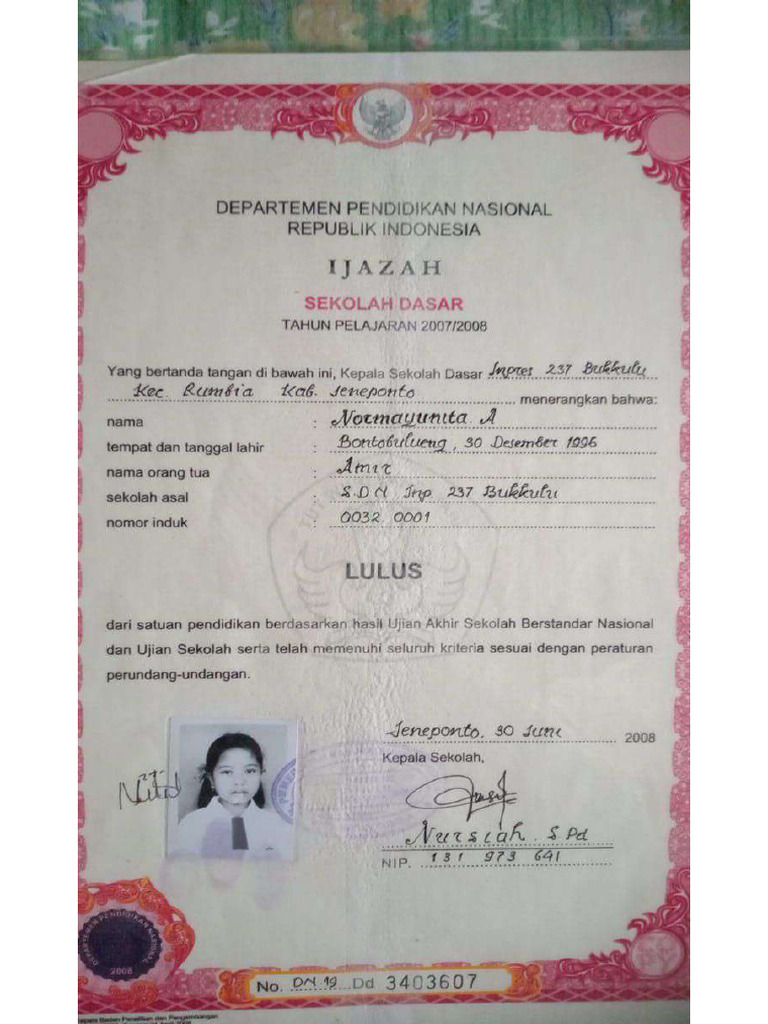 DEPARTEMEN PENDIDIKAN NASIONAL
REPUBLIK INDONESIA
IJAZAH
SEKOLAH DASAR
TAHUN PELAJARAN 2007/2008
Yang bertanda tangan di bawah ini, Kepala Sekolah Dasar Inpres 237 Bukkulu
Kec Rumbia Kab. Jeneponto menerangkan bahwa:
nama : Normayunita A
tempat dan tanggal lahir : Bontobulueng, 30 Desember 1996
nama orang tua : Amir
sekolah asal : S.D.N Inp. 237 Bukkulu
nomor induk : 0032 0001
LULUS
dari satuan pendidikan berdasarkan hasil Ujian Akhir Sekolah Berstandar Nasional
dan Ujian Sekolah serta telah memenuhi seluruh kriteria sesuai dengan peraturan
perundang-undangan.
Jeneponto, 30 Juni 2008
Kepala Sekolah,
Nursiah. S.Pd
NIP. 131 973 641
DEPARTEMEN PENDIDIKAN NASIONAL
2008
No. DN 19 Dd 3403607
Badan Penelitian dan Pengembangan